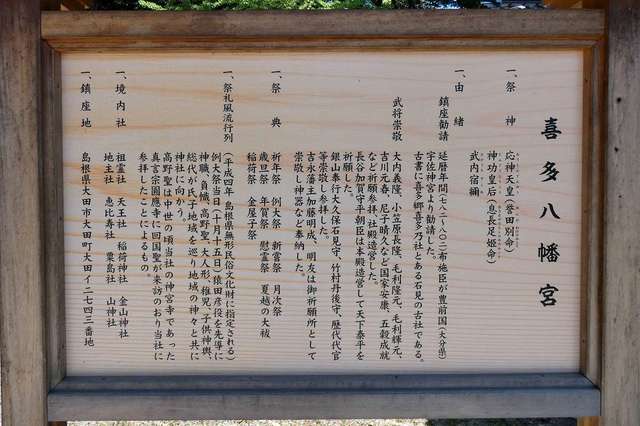 喜多八幡宮
一、祭神
応神天皇（誉田別命）
神功皇后（息長足姫命）
武内宿禰
一、由緒
鎮座勧請
延暦年間（七八二～八〇三）布施臣が豊前国（大分県）
宇佐神宮より勧請した。
古書に喜多郷喜多乃社とある石見の古社である。
武将崇敬
大内義隆、小笠原長隆、毛利隆元、毛利輝元、
吉川元春、尼子晴久など国家安康、五穀成就
など祈願参拝、社殿造営した。
長谷加賀守平朝臣は本殿造営して天下泰平を
祈願した。
銀山奉行大久保石見守、竹村丹後守、歴代代官
等崇敬し参拝した。
吉永藩主加藤明成、明友は御祈願所として
崇敬し神器など奉納した。
一、祭典
祈年祭 例大祭 新嘗祭 月次祭
歳旦祭 年賀祭 慰霊祭 夏越の大祓
稲荷祭 金屋子祭
一、祭礼風流行列
（平成四年、島根県無形民俗文化財に指定される）
例大祭当日（十月十五日）猿田彦役を先導に
神職、負幟、高野聖、大人形、稚児、子供神輿、
総代が氏子地域を巡り地域の神々と共に
神社に向かう。
高野聖は中世の頃当社の神宮寺であった
真言宗圓應寺に回国聖が来訪のおり当社に
参拝したことによるもの。
一、境内社
祖霊社 天王社 稲荷神社 金山神社
地主社 恵比寿社 粟島社 山神社
一、鎮座地
島根県大田市大田町大田イ二七四三番地